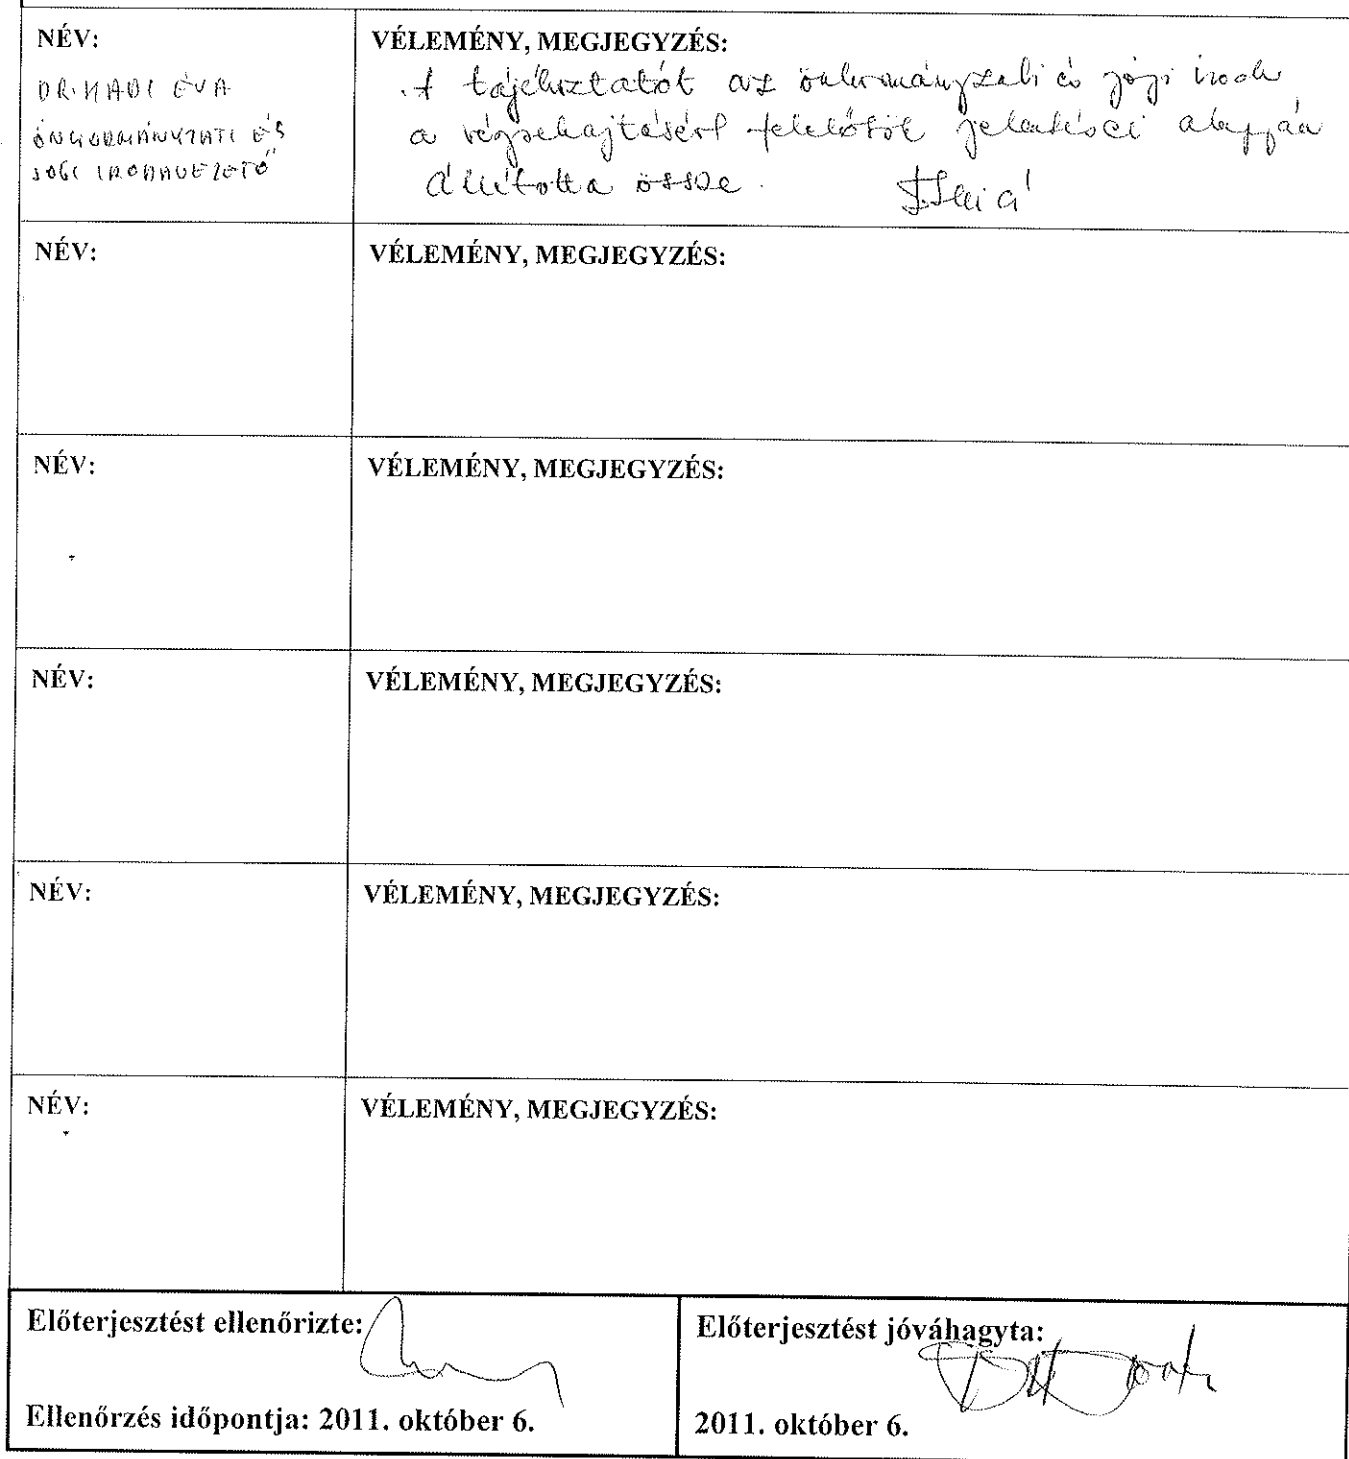 NÉV:
DR. HADI ÉVA
ÖNKORMÁNYZATI ÉS
JOGI IRODAVEZETŐ
VÉLEMÉNY, MEGJEGYZÉS:
A tájékoztatót az önkormányzati és jogi iroda
a végrehajtásért felelősök jelentései alapján
állította össze.
NÉV:
VÉLEMÉNY, MEGJEGYZÉS:
NÉV:
VÉLEMÉNY, MEGJEGYZÉS:
NÉV:
VÉLEMÉNY, MEGJEGYZÉS:
NÉV:
VÉLEMÉNY, MEGJEGYZÉS:
NÉV:
VÉLEMÉNY, MEGJEGYZÉS:
Előterjesztést ellenőrizte:
Ellenőrzés időpontja: 2011. október 6.
Előterjesztést jóváhagyta:
2011. október 6.